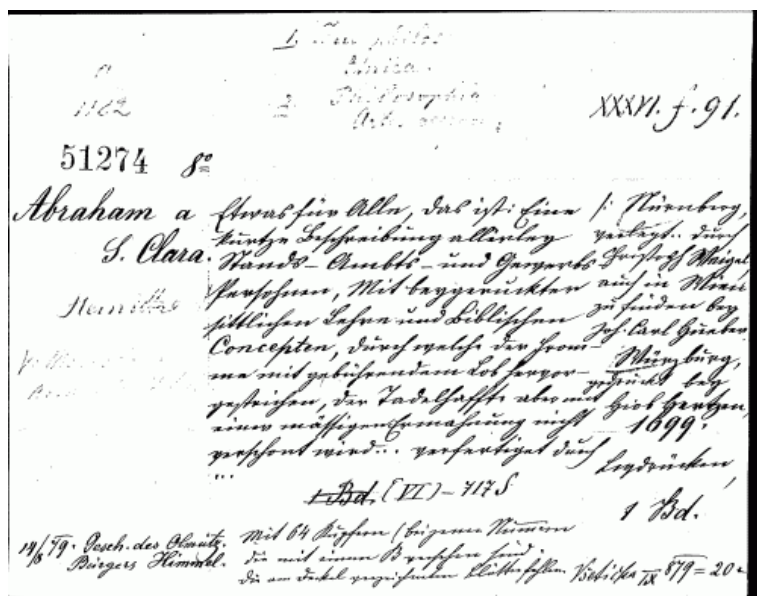 1. Jus philos.
Unica.
2. Philosophia
a
1182
XXXVI. f. 91.
51274 8º
Abraham a
S. Clara.
Etwas für Alle, das ist: Eine
kurtze Beschreibung allerley
Stands- Ambts- und Gewerbs
Persohnen, Mit beygeruckter
sittlichen Lehre und Biblischen
Concepten, durch welche der from-
me mit gebührendem Lob hervor-
gestrichen, der Tadelhaffte aber mit
einer mässigen Ermahnung nicht
verschont wird... verfertiget durch
...
/: Nürnberg,
verlegt.. durch
Christoph Weigel,
auch in Wien
zu finden bey
Joh. Carl Hueber
Würzburg,
gedruckt bey
Hiob Hertzen,
1699.
1 Bd. [VI] - 717 S
1 Bd.
14/8 79. Gesch. des Olmütz.
Bürgers Himmel.
Mit 64 Kupfern (bei jenen Nummern
die mit einem
die am Deckel verzeichneten Blätter fehlen.
IX 879 = 20